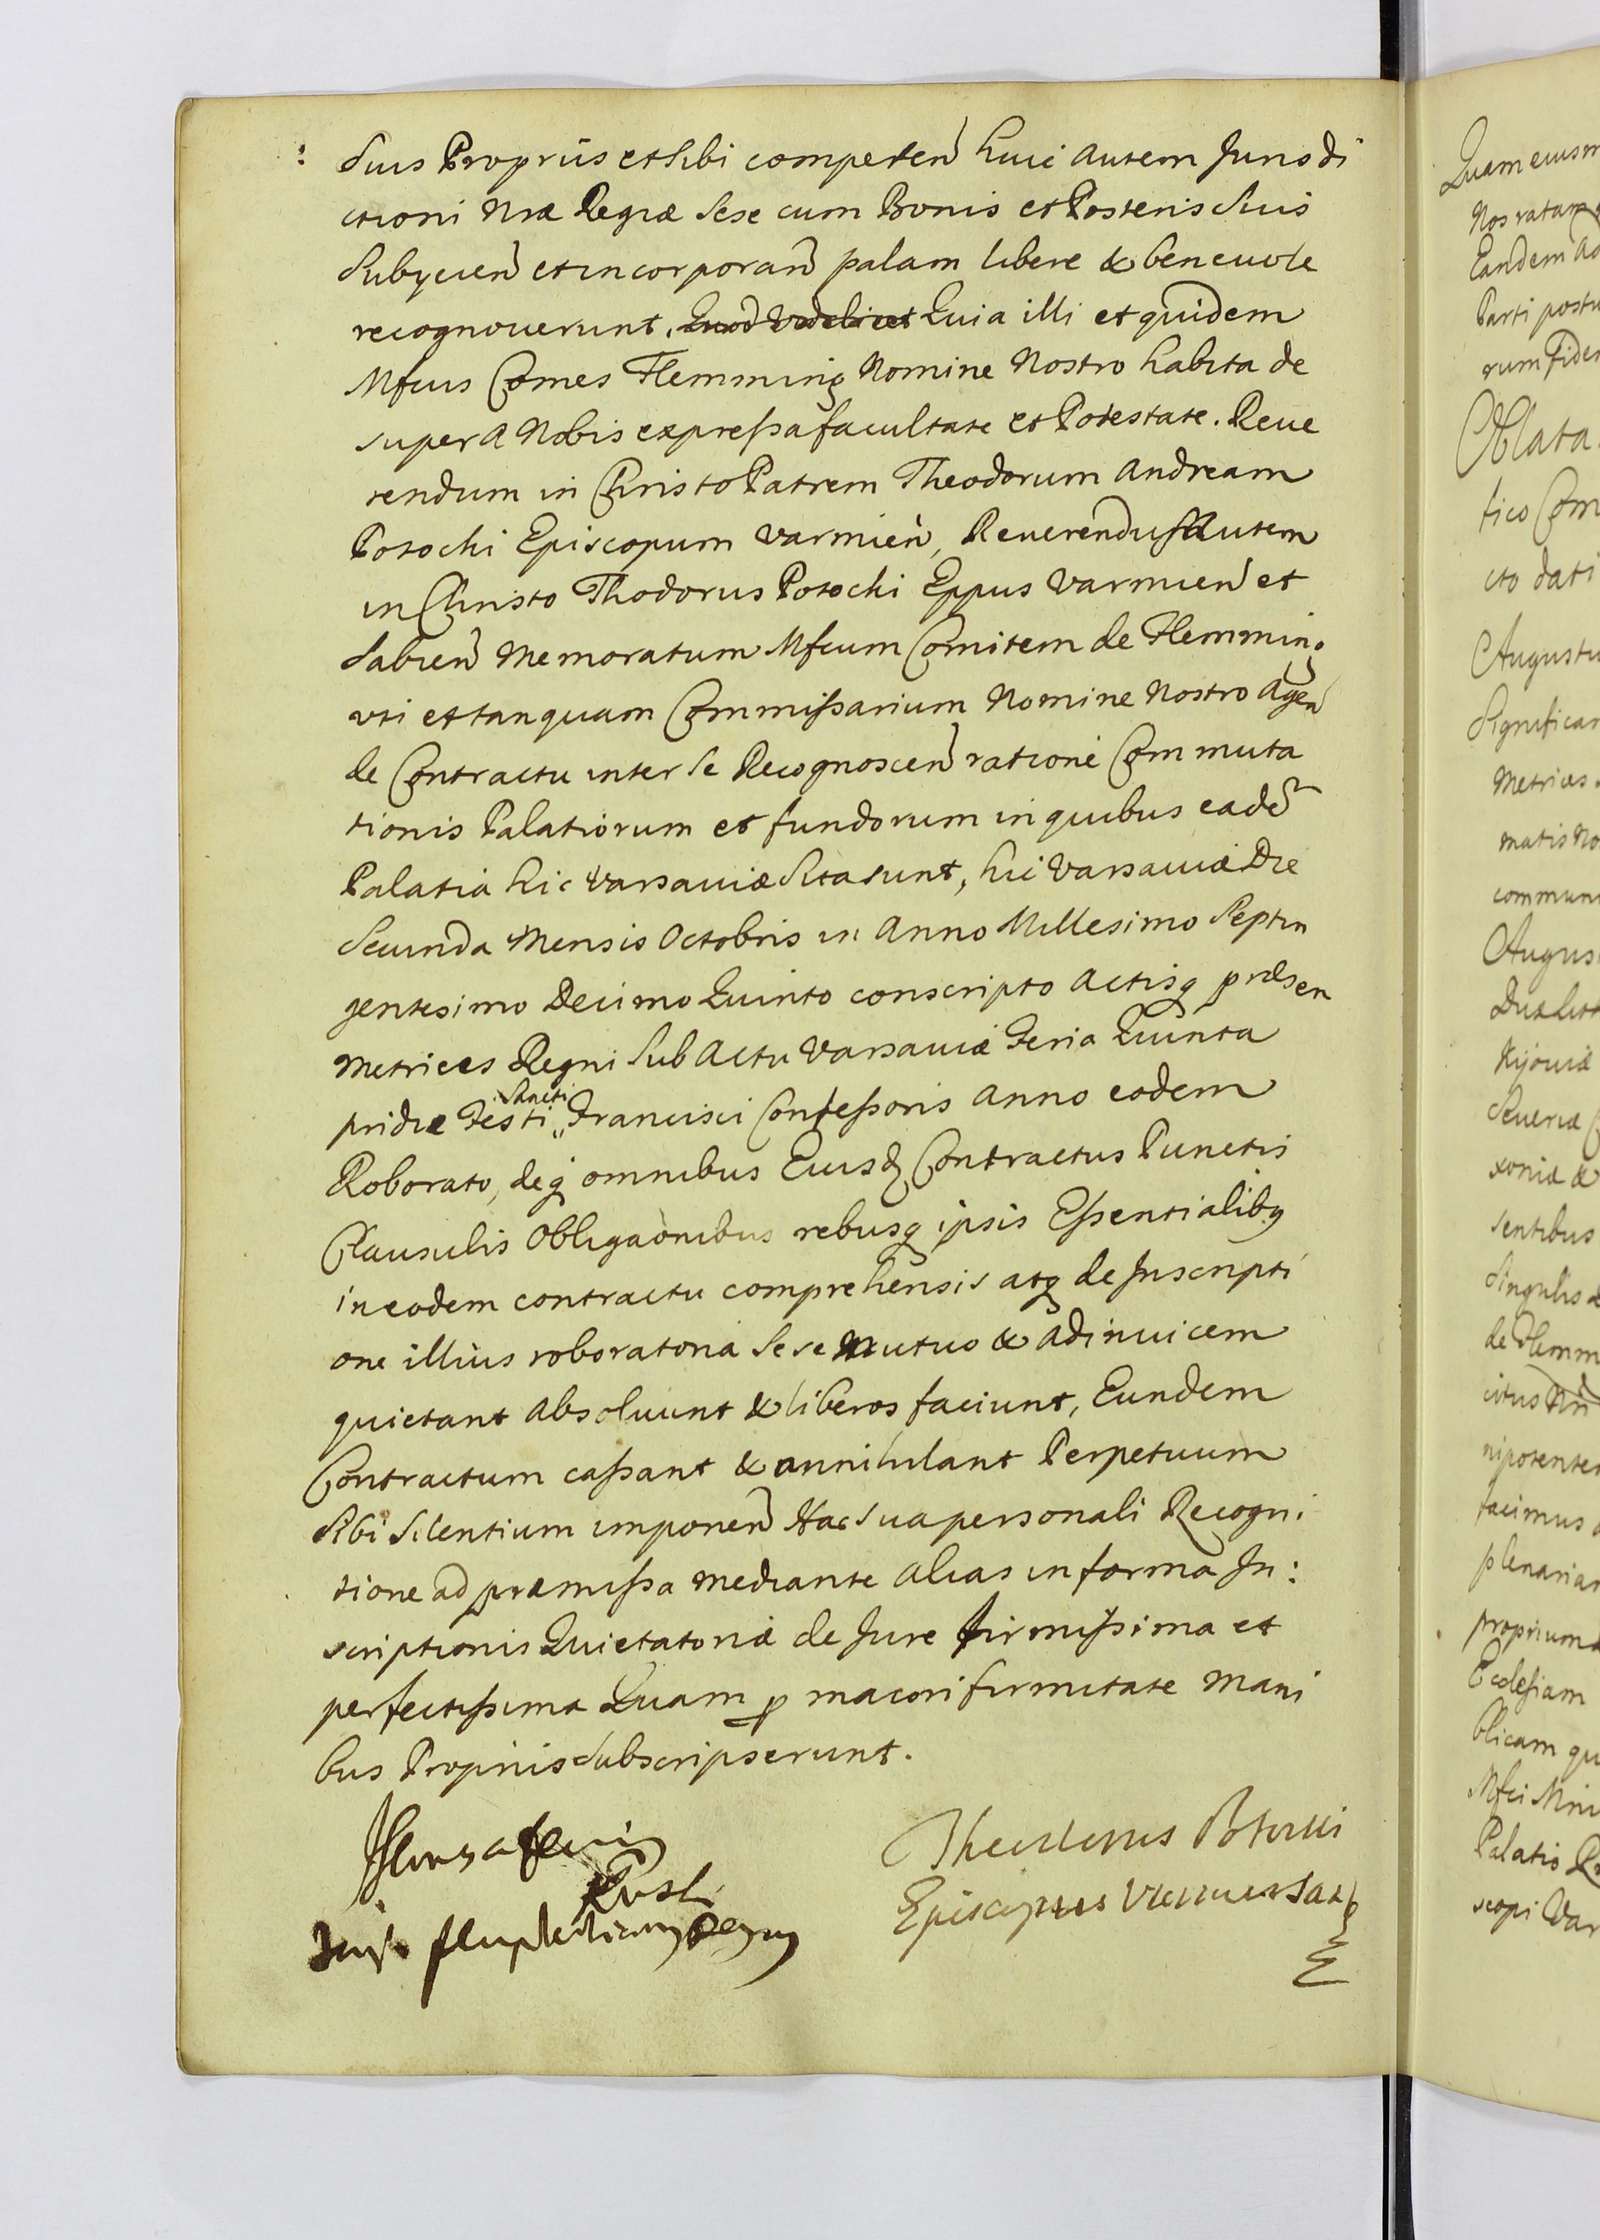 Suis Propriis et sibi competen huic autem Jurisdi
ctioni Nræ Regiæ sese cum Bonis et Posteris Suis
Subijcien et incorporan palam libere & beneuole
recognouerunt. Quod videlicet Quia illi et quidem
Mfcus Comes Flemming Nomine Nostro habita de
super a Nobis expressa facultate et Potestate. Reue
rendum in Christo Patrem Theodorum Andream
Potocki Episcopum Varmien, Reuerendus autem
in Christo Thodorus Potocki Eppus Varmien et
Sabien Memoratum Mfcum Comitem de Flemming
uti et tanquam Commissarium Nomine Nostro Agen
de Contractu inter se Recognoscen ratione Commuta
tionis Palatiorum et fundorum in quibus eade
Palatia hic Varsauiæ sita sunt, hic Varsauiæ Die
Secunda Mensis Octobris in Anno Millesimo Septin
gentesimo Decimo Quinto conscripto Actisq præsen
Metrices Regni sub Actu Varsauiæ Feria Quinta
pridie Festi Sancti Francisci Confessoris Anno eodem
Roborato, deq omnibus Eiusd Contractus Punctis
Clausulis Obligaonibus rebusq ipsis Essentialibq
in eodem contractu comprehensis atq de Inscripti
one illius roboratoria sese Mutuo & adinuicem
quietant absoluunt & liberos faciunt, Eundem
Contractum cassant & annihilant Perpetuum
Sibi Silentium imponen Hac sua personali Recogni
tione ad præmissa mediante alias in forma In:
scriptionis Quietatoriæ de Jure firmissima et
perfectissima Quam p maiori firmitate Mani
bus Propriis subscripserunt.
Theodorus Potocki
Episcopus
Quam eiusm
Nos ratam
Eandem
Parti postu
rum Fide
Oblata
tico Com
cto dati
Augustu
Significa
Metrices
matis No
commun
Augus
Dux Lit
Kijouiæ
Seueriæ
xoniæ &
sentibus
Singulis
de Flemm
citus
nipotente
facimus
plenaria
proprium
Ecclesiam
blicam qu
Mfci
Palatio
scopi Var